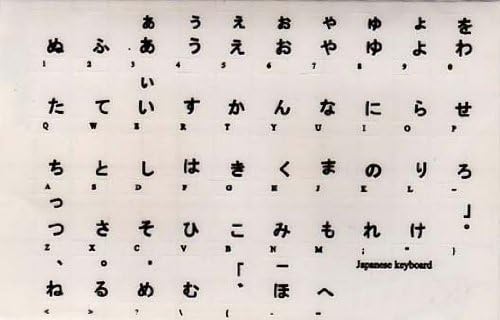 ぁ ぅ ぇ ぉ ゃ ゅ ょ を
ぬ ふ あ う え お や ゆ よ わ
1 2 3 4 5 6 7 8 9 0
ぃ
た て い す か ん な に ら せ
Q W E R T Y U I O P
ち と し は き く ま の り ろ
A S D F G H J K L -
っ 」
つ さ そ ひ こ み も れ け 。
Z X C V B N M ; " }
、 。 ・ 「 ー Japanese keyboard
ね る め む ゛ ほ へ
< > ? \ { - =